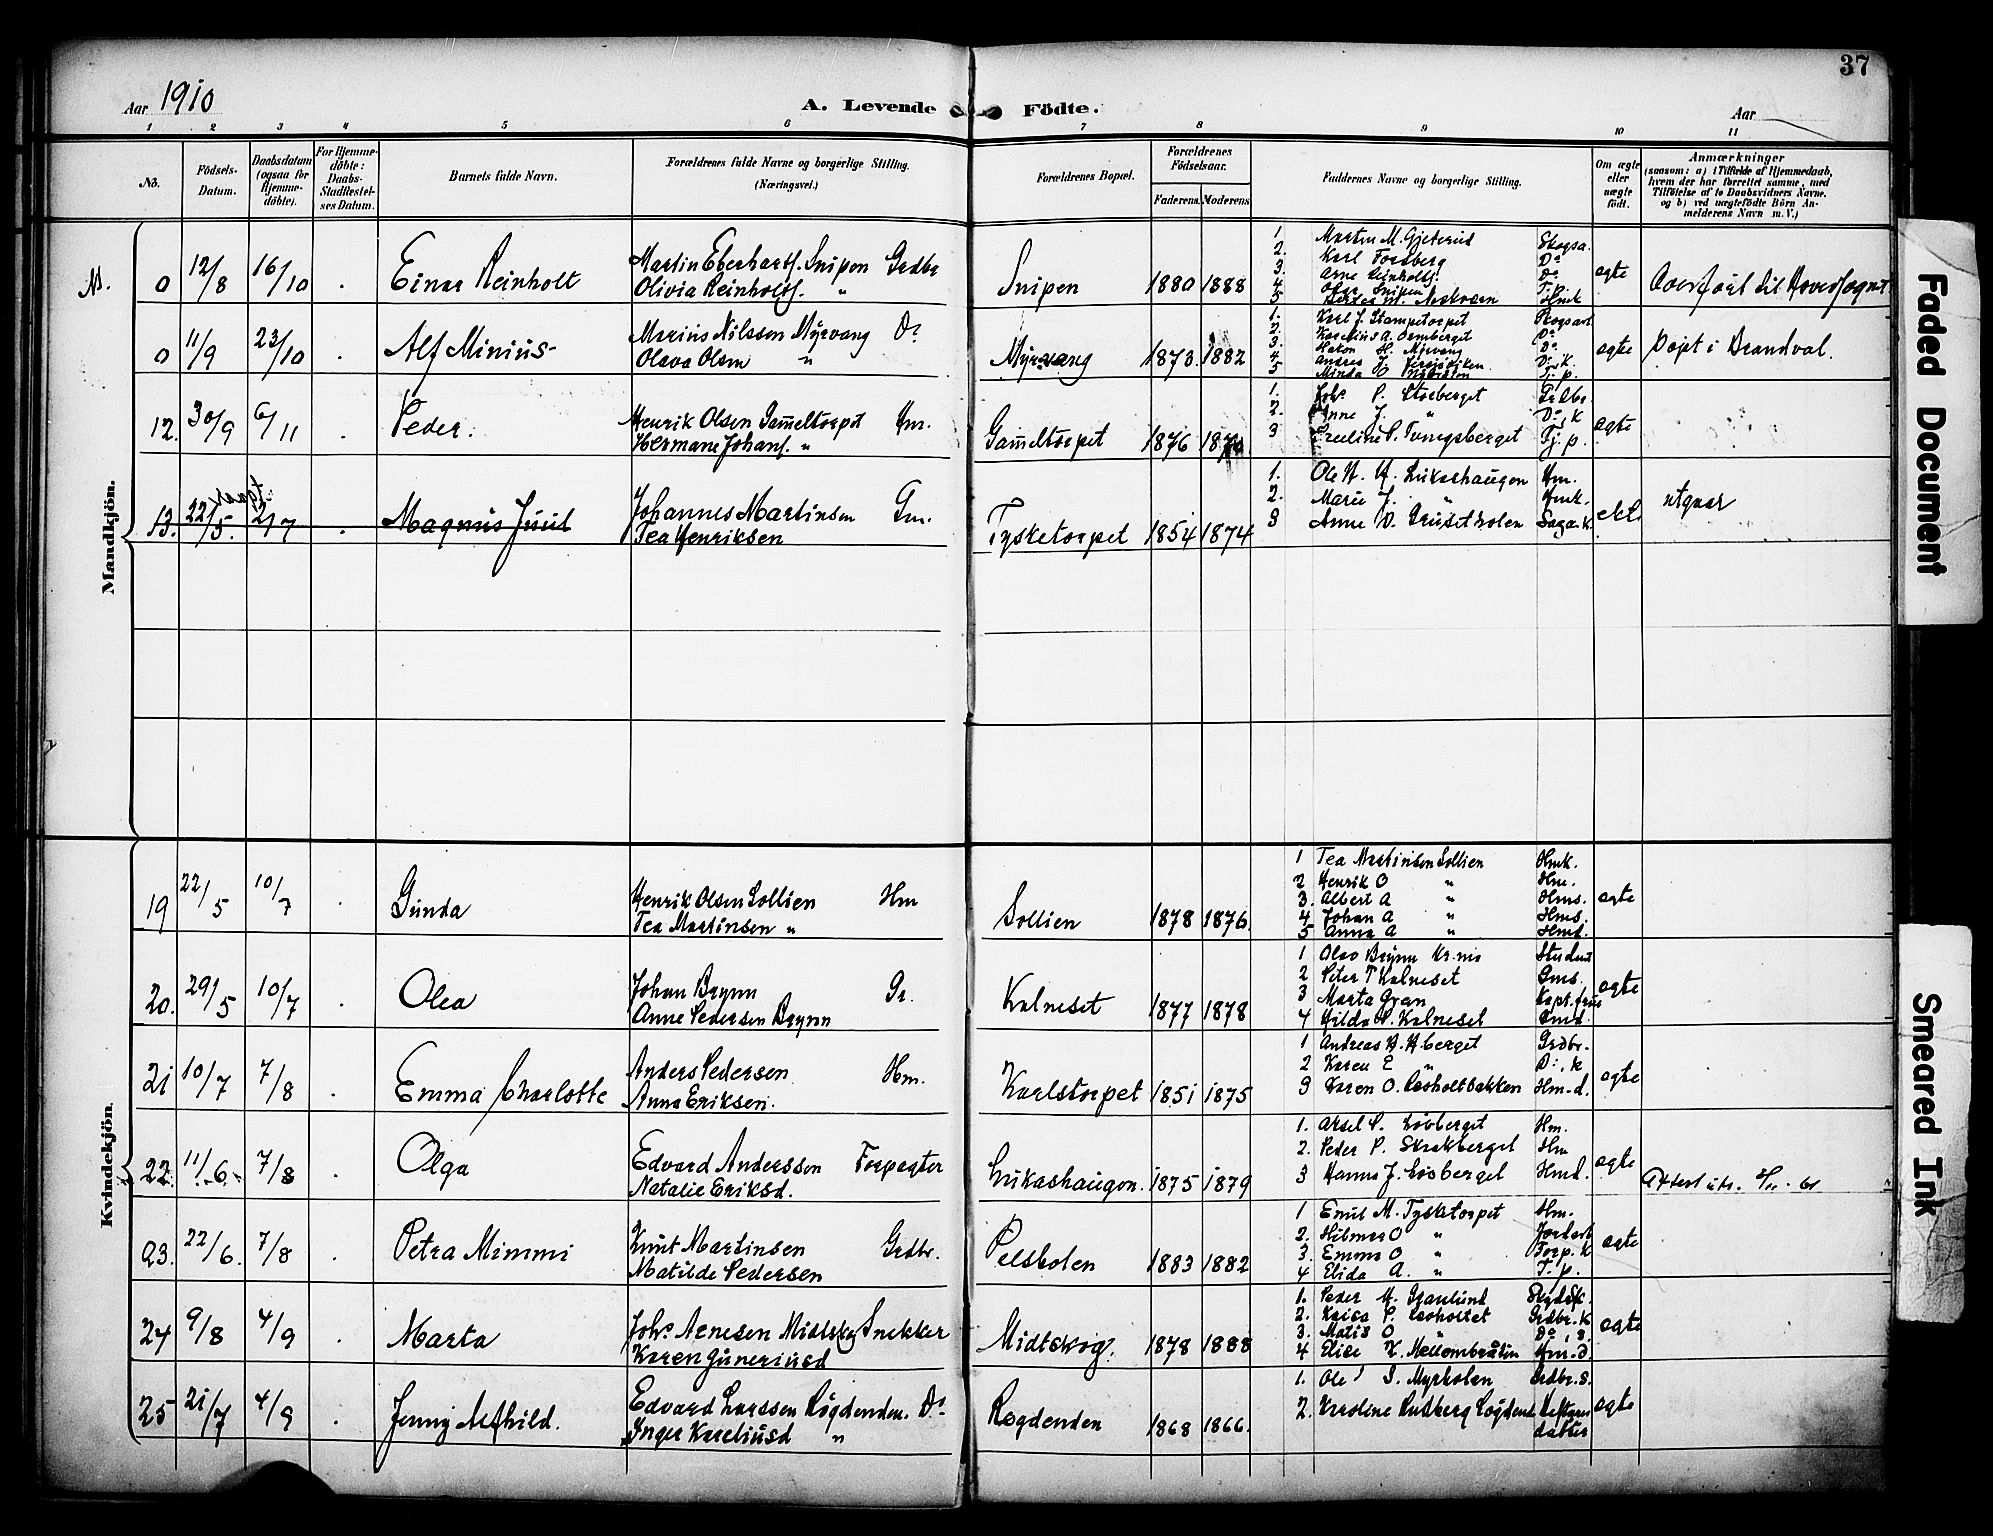 37
Aar 1910
A. Levende Födte.
Aar
1 2 3 4 5 6 7 8 9 10 11
No.
Födsels-Datum.
Daabsdatum (ogsaa for Hjemme-döbte).
For Hjemme-döbte: Daabs-Stadfæstel-ses Datum.
Barnets fulde Navn.
Forældrenes fulde Navne og borgerlige Stilling. (Næringsvei.)
Forældrenes Bopæl.
Forældrenes Födselsaar.
Faderens Moderens
Faddernes Navne og borgerlige Stilling.
Om ægte eller uægte födt.
Anmærkninger
(saasom: a) i Tilfælde af Hjemmedaab, hvem der har forrettet samme, med Tilföielse af to Daabsvidners Navne. og b) ved uægtefödte Börn An-melderens Navn m. V.)
Mandkjön.
0 12/8 16/10 Einar Reinholt
Martin Eberhartsf. Snipen Grdbr
Olivia Reinholdsf. "
Snipen 1880 1888
1. Martin M. Gjeterud Skogsa.
2. Karl Forsberg Do
3. Arne Reinholtsf. Do
4. Snipen
5
ægte
Overført til Hovedsognet
0 11/9 23/10 Alf Minius
Marius Nilssen Myrvang Do
Olava Olsen "
Myrvang 1873 1882
1. Karl J. Stampetorpet Skogsarb
2.
3. Hakon H. Myrvang Do
4
5 Minda
ægte
Døpt i Brandval.
12. 30/9 6/11 Peder.
Henrik Olsen Gammeltorpet Hm.
Hermane Johansf. "
Gammeltorpet 1876
1. Johs P. Storberget Grdbr
2. Anne J. " Do k
3 Tj. p.
ægte
13. 22/5 2/7 Magnus Juul
Johannes Martinsen Gm.
Tea Henriksen
Tysketorpet 1854 1874
1. Ole H. H. Lukashaugen Hm.
2. Marie J. " Hmk.
3 Anne
utgaar
Kvindekjön.
19 22/5 10/7 Gunda
Henrik Olsen Sollien Hm
Tea Martinsen "
Sollien 1878 1876
1 Tea Martinsen Sollien Hmk.
2 Henrik O " Hm.
3. Albert A " Hms.
4 Johan A " Hms.
5 Anna A " Hmd.
ægte
20. 29/5 10/7 Olea
Johan Brynn Gr.
Anne Pedersen Brynn
Kalneset 1877 1878
1 Olav Brynn Kr.nia Student
2 Peter T Kalneset Gms.
3 Marta Gran Kapt. frue
4 Hilda P. Kalneset Gmd.
ægte
21 10/7 7/8 Emma Charlotte
Anders Pedersen Hm.
Anna Eriksen.
Karlstorpet 1851 1875
1 Andreas H. H. berget Grdbr.
2 Karen E " Do. k
3 Karen O. Rasholtbakken Hm-d.
ægte
22. 11/6 7/8 Olga
Edvard Anderssen Forpagter
Natalie Eriksd.
Lukashaugen. 1875 1879
1. Aksel P. Løvberget Hm.
2. Peder P. Skrakberget Hm
3 Hanna J. Løvberget Hmd.
ægte
Attest utst.
23. 22/6. 7/8 Petra Mimmi
Knut Martinsen Grdbr.
Matilde Pedersen
Pelsholen 1883 1882
1 Emil M. Tysketorpet Hm.
2. Hilmar O "
3. Emma O " Forp. k
4 Elida A. " T. p.
ægte
24 9/8 4/9 Marta
Johs Arnesen Midtskog Snekker
Karen Guneriusd
Midtskog. 1878 1888
1. Peder M. Granlund
2. Kaisa P. Rasholtet Grdbr. k
3. Matis O " Do, s.
4 Elise K. Mellembråten Hm-d.
ægte
25 21/7 4/9 Jenny Alfhild.
Edvard Larssen Røgdenden. Do
Inger Kareliusd "
Røgdenden 1868 1866.
1. Ole S. Myrholen Grdbr. s.
2. Karoline Rudberg Røgdend datter
ægte
Faded Document
Smeared Ink